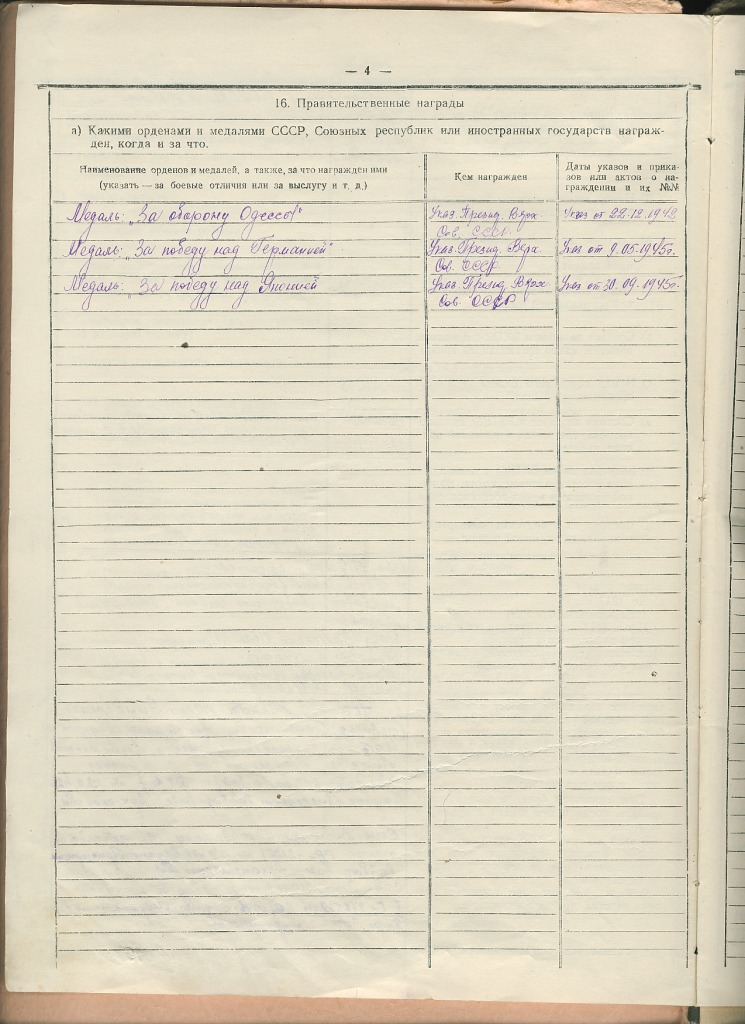 — 4 —
16. Правительственные награды
а) Какими орденами и медалями СССР, Союзных республик или иностранных государств награж-
ден, когда и за что.
Наименование орденов и медалей, а также, за что награжден ими
(указать — за боевые отличия или за выслугу и т. д.)
Кем награжден
Даты указов и прика-
зов или актов о на-
граждении и их №№
Медаль: „За оборону Одессы"
Указ. Презид. Верх.
Сов. СССР.
Указ от 22.12.1942
Медаль: „За победу над Германией"
Указ. Презид. Верх.
Сов. СССР
Указ от 9.05.1945г.
Медаль: „За победу над Японией
Указ. Презид. Верх.
Сов. СССР
Указ от 30.09.1945г.